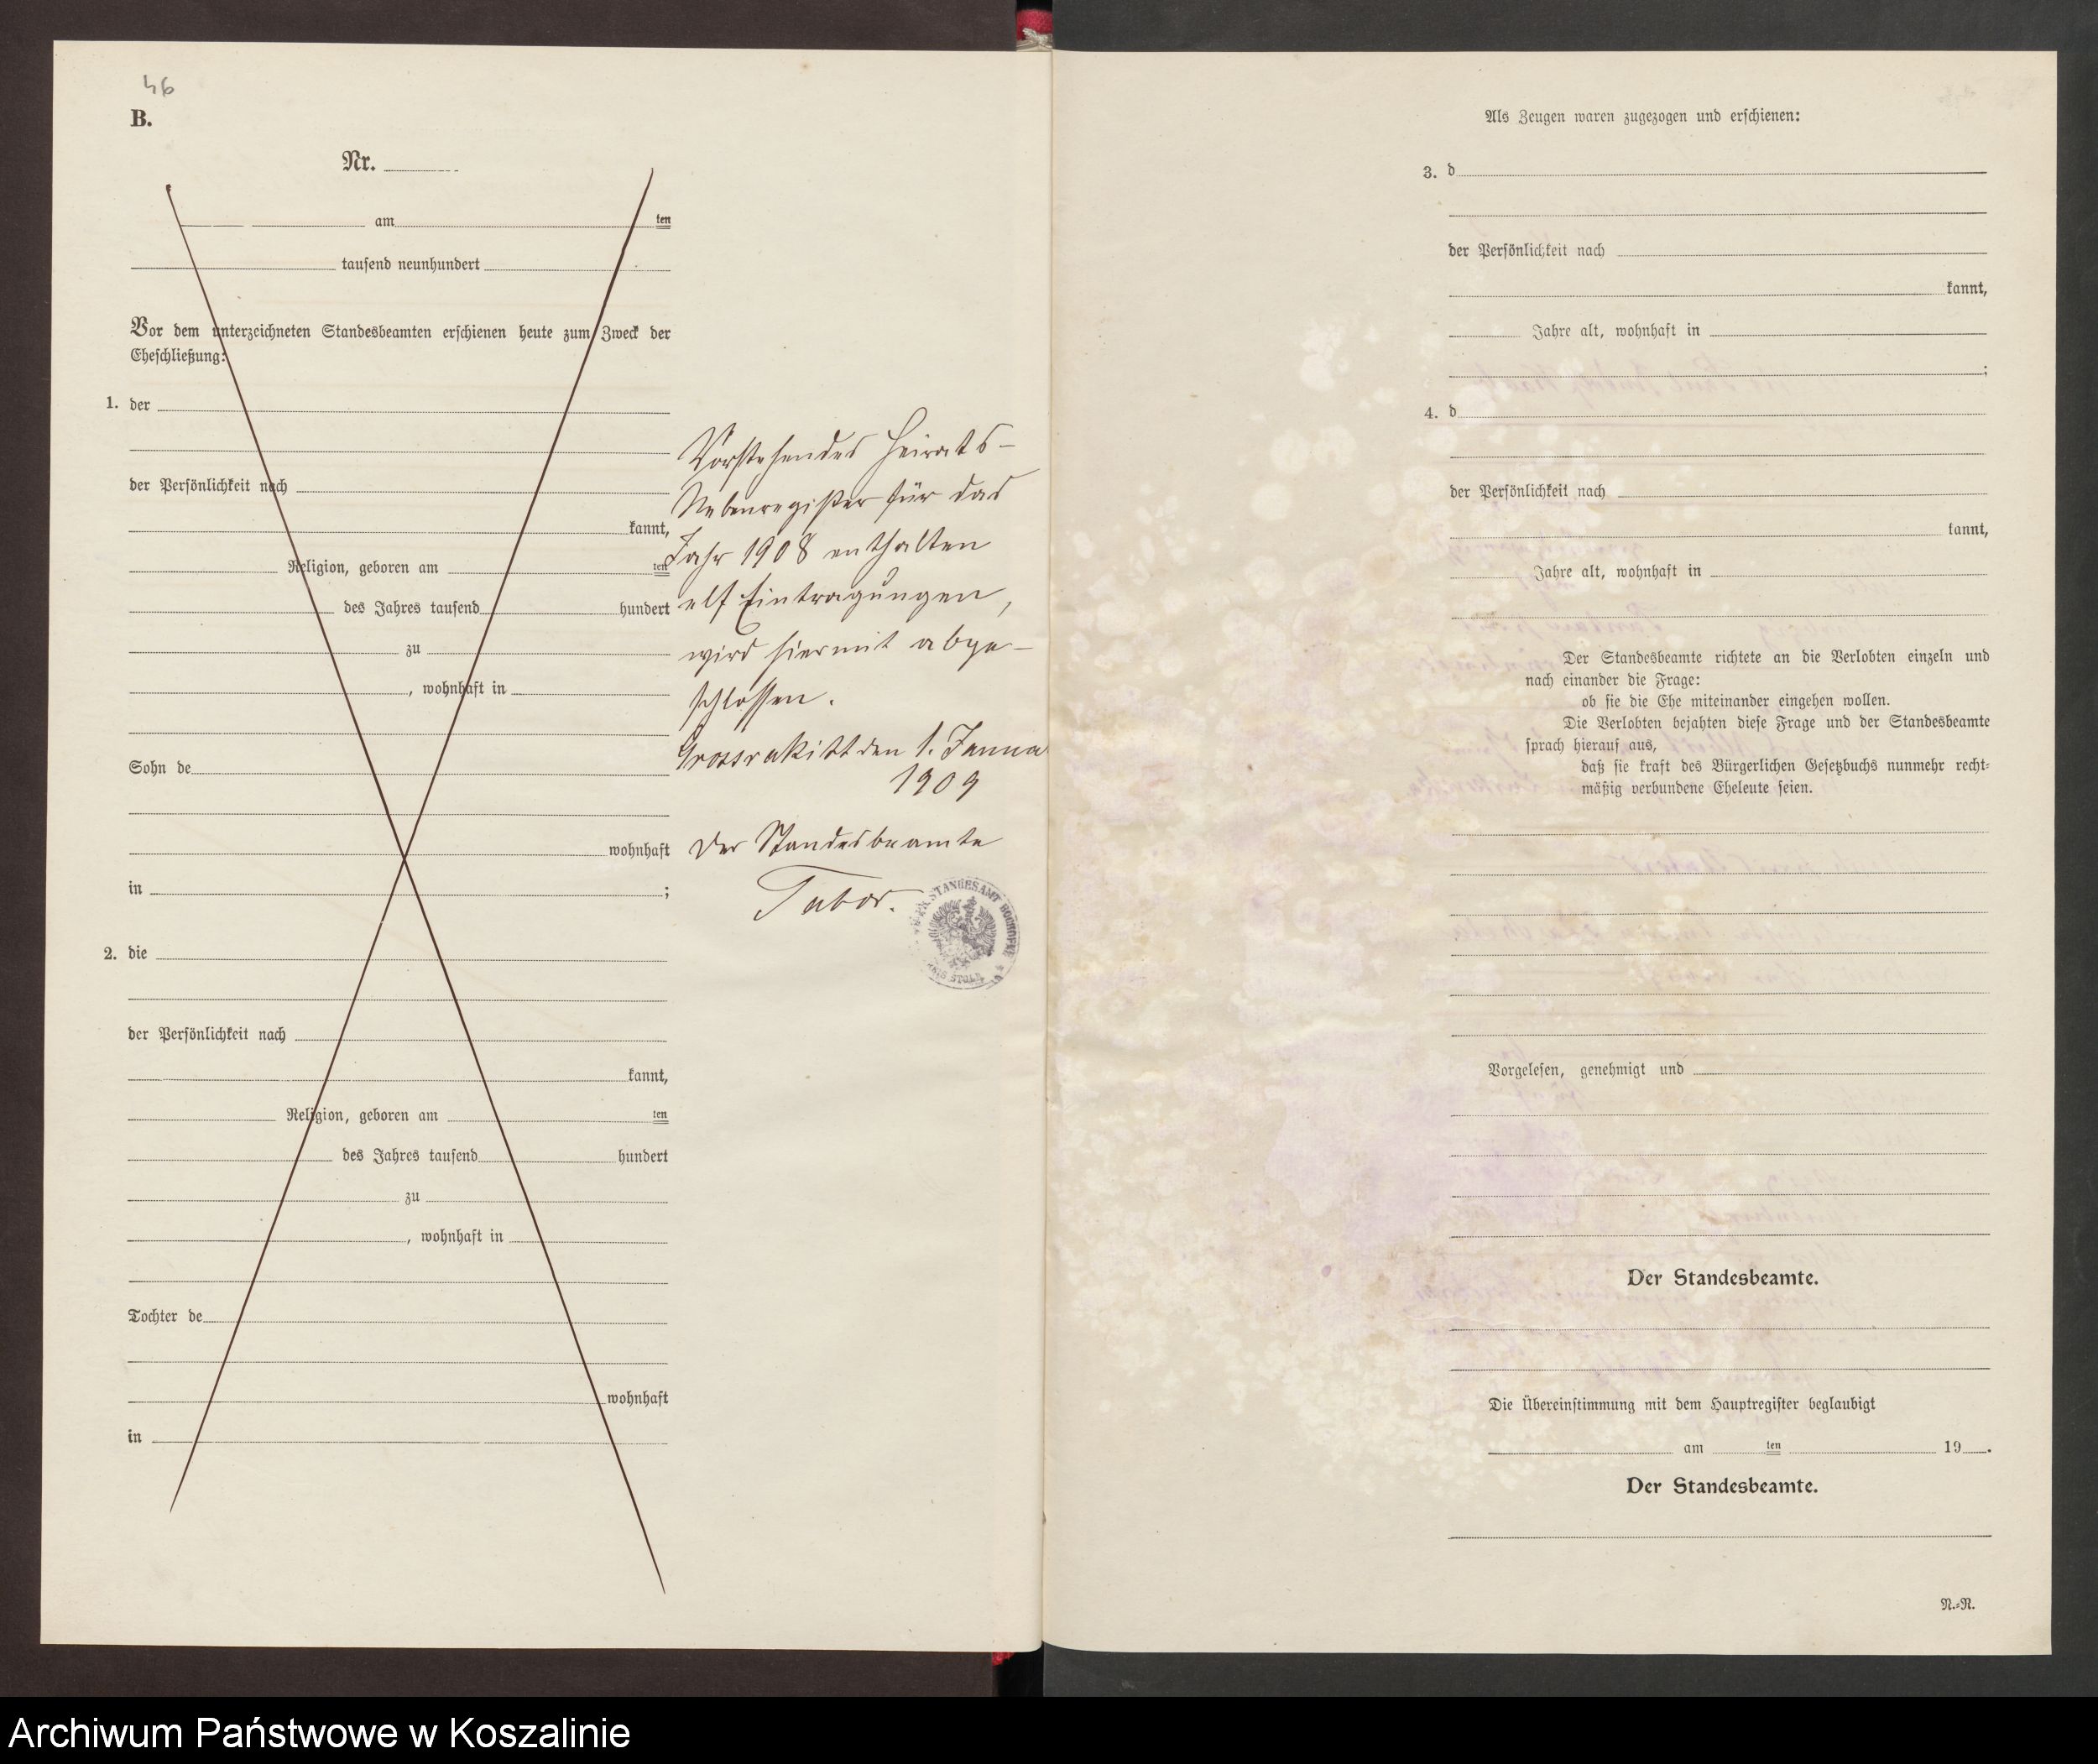 46
B.
Nr.
am ten
tausend neunhundert
Vor dem unterzeichneten Standesbeamten erschienen heute zum Zweck der
Eheschließung:
1. der
der Persönlichkeit nach
kannt,
Religion, geboren am ten
des Jahres tausend hundert
zu
, wohnhaft in
Sohn de
wohnhaft
in ;
2. die
der Persönlichkeit nach
kannt,
Religion, geboren am ten
des Jahres tausend hundert
zu
, wohnhaft in
Tochter de
wohnhaft
in
Vorstehendes Heirats-
Nebenregister für das
Jahr 1908 enthalten
elf Eintragungen,
wird hiermit abge-
schlossen.
Grossrakitt den 1. Janua
1909
Der Standesbeamte
Tabor.
STANDESAMT
Als Zeugen waren zugezogen und erschienen:
3. d
der Persönlichkeit nach
kannt,
Jahre alt, wohnhaft in
;
4. d
der Persönlichkeit nach
kannt,
Jahre alt, wohnhaft in
Der Standesbeamte richtete an die Verlobten einzeln und
nach einander die Frage:
ob sie die Ehe miteinander eingehen wollen.
Die Verlobten bejahten diese Frage und der Standesbeamte
sprach hierauf aus,
daß sie kraft des Bürgerlichen Gesetzbuchs nunmehr recht-
mäßig verbundene Eheleute seien.
Vorgelesen, genehmigt und
Der Standesbeamte.
Die Übereinstimmung mit dem Hauptregister beglaubigt
am ten 19 .
Der Standesbeamte.
N.-R.
Archiwum Państwowe w Koszalinie